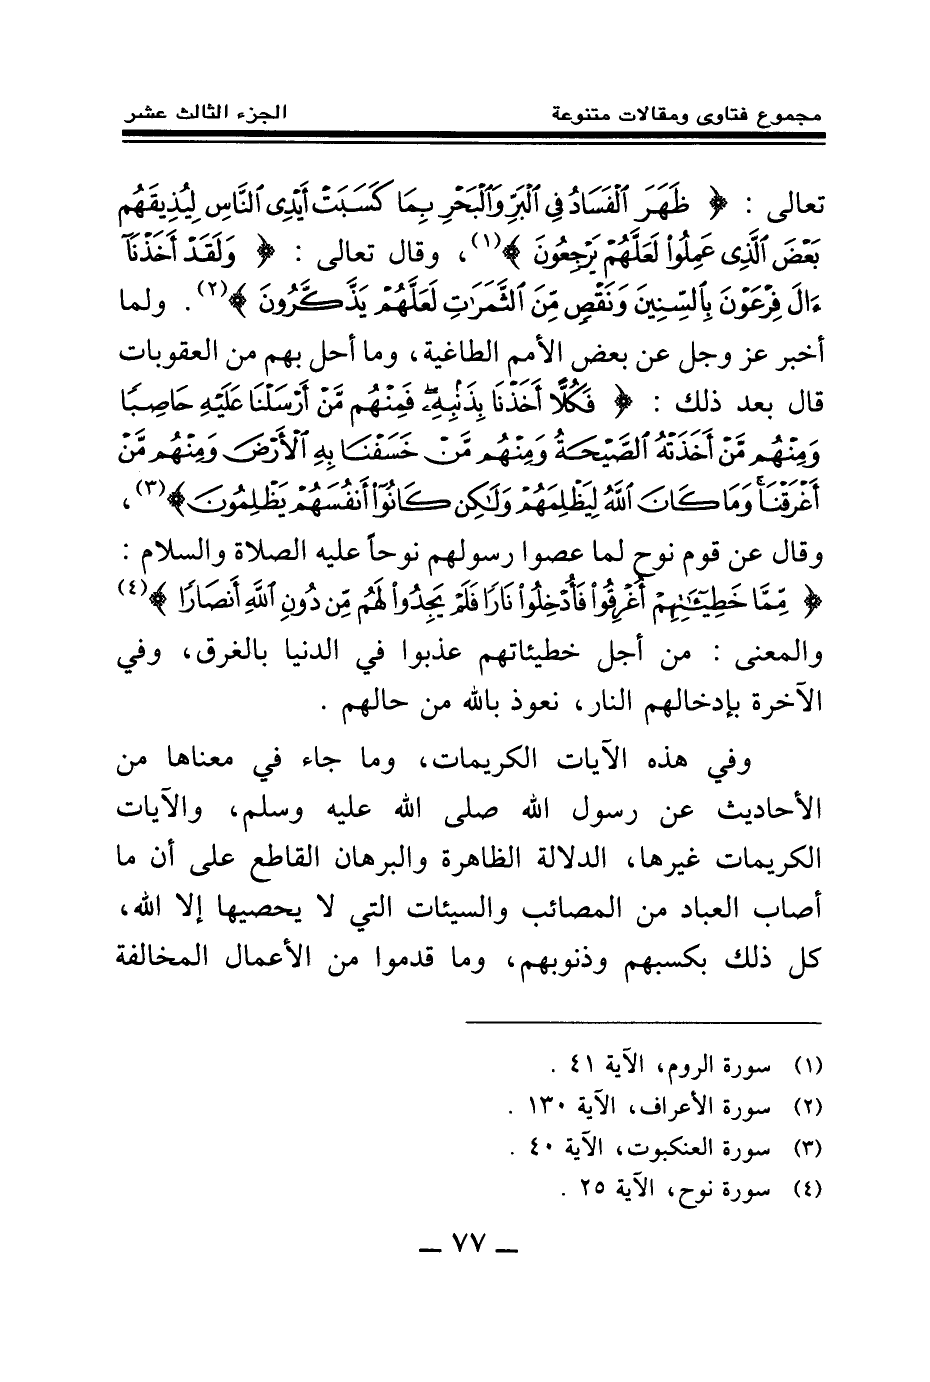 مجموع فتاوى ومقالات متنوعة الجزء الثالث عشر
تعالى : ﴿ ظَهَرَ ٱلْفَسَادُ فِى ٱلْبَرِّ وَٱلْبَحْرِ بِمَا كَسَبَتْ أَيْدِى ٱلنَّاسِ لِيُذِيقَهُم
بَعْضَ ٱلَّذِى عَمِلُوا۟ لَعَلَّهُمْ يَرْجِعُونَ ﴾(١)، وقال تعالى : ﴿ وَلَقَدْ أَخَذْنَآ
ءَالَ فِرْعَوْنَ بِٱلسِّنِينَ وَنَقْصٍ مِّنَ ٱلثَّمَرَٰتِ لَعَلَّهُمْ يَذَّكَّرُونَ ﴾(٢) . ولما
أخبر عز وجل عن بعض الأمم الطاغية، وما أحل بهم من العقوبات
قال بعد ذلك : ﴿ فَكُلًّا أَخَذْنَا بِذَنۢبِهِۦ ۖ فَمِنْهُم مَّنْ أَرْسَلْنَا عَلَيْهِ حَاصِبًا
وَمِنْهُم مَّنْ أَخَذَتْهُ ٱلصَّيْحَةُ وَمِنْهُم مَّنْ خَسَفْنَا بِهِ ٱلْأَرْضَ وَمِنْهُم مَّنْ
أَغْرَقْنَا ۚ وَمَا كَانَ ٱللَّهُ لِيَظْلِمَهُمْ وَلَٰكِن كَانُوٓا۟ أَنفُسَهُمْ يَظْلِمُونَ ﴾(٣)،
وقال عن قوم نوح لما عصوا رسولهم نوحاً عليه الصلاة والسلام :
﴿ مِّمَّا خَطِيٓـَٰٔتِهِمْ أُغْرِقُوا۟ فَأُدْخِلُوا۟ نَارًا فَلَمْ يَجِدُوا۟ لَهُم مِّن دُونِ ٱللَّهِ أَنصَارًا ﴾(٤)
والمعنى : من أجل خطيئاتهم عذبوا في الدنيا بالغرق، وفي
الآخرة بإدخالهم النار، نعوذ بالله من حالهم .
وفي هذه الآيات الكريمات، وما جاء في معناها من
الأحاديث عن رسول الله صلى الله عليه وسلم، والآيات
الكريمات غيرها، الدلالة الظاهرة والبرهان القاطع على أن ما
أصاب العباد من المصائب والسيئات التي لا يحصيها إلا الله،
كل ذلك بكسبهم وذنوبهم، وما قدموا من الأعمال المخالفة
(١) سورة الروم، الآية ٤١ .
(٢) سورة الأعراف، الآية ١٣٠ .
(٣) سورة العنكبوت، الآية ٤٠ .
(٤) سورة نوح، الآية ٢٥ .
ــ ٧٧ ــ